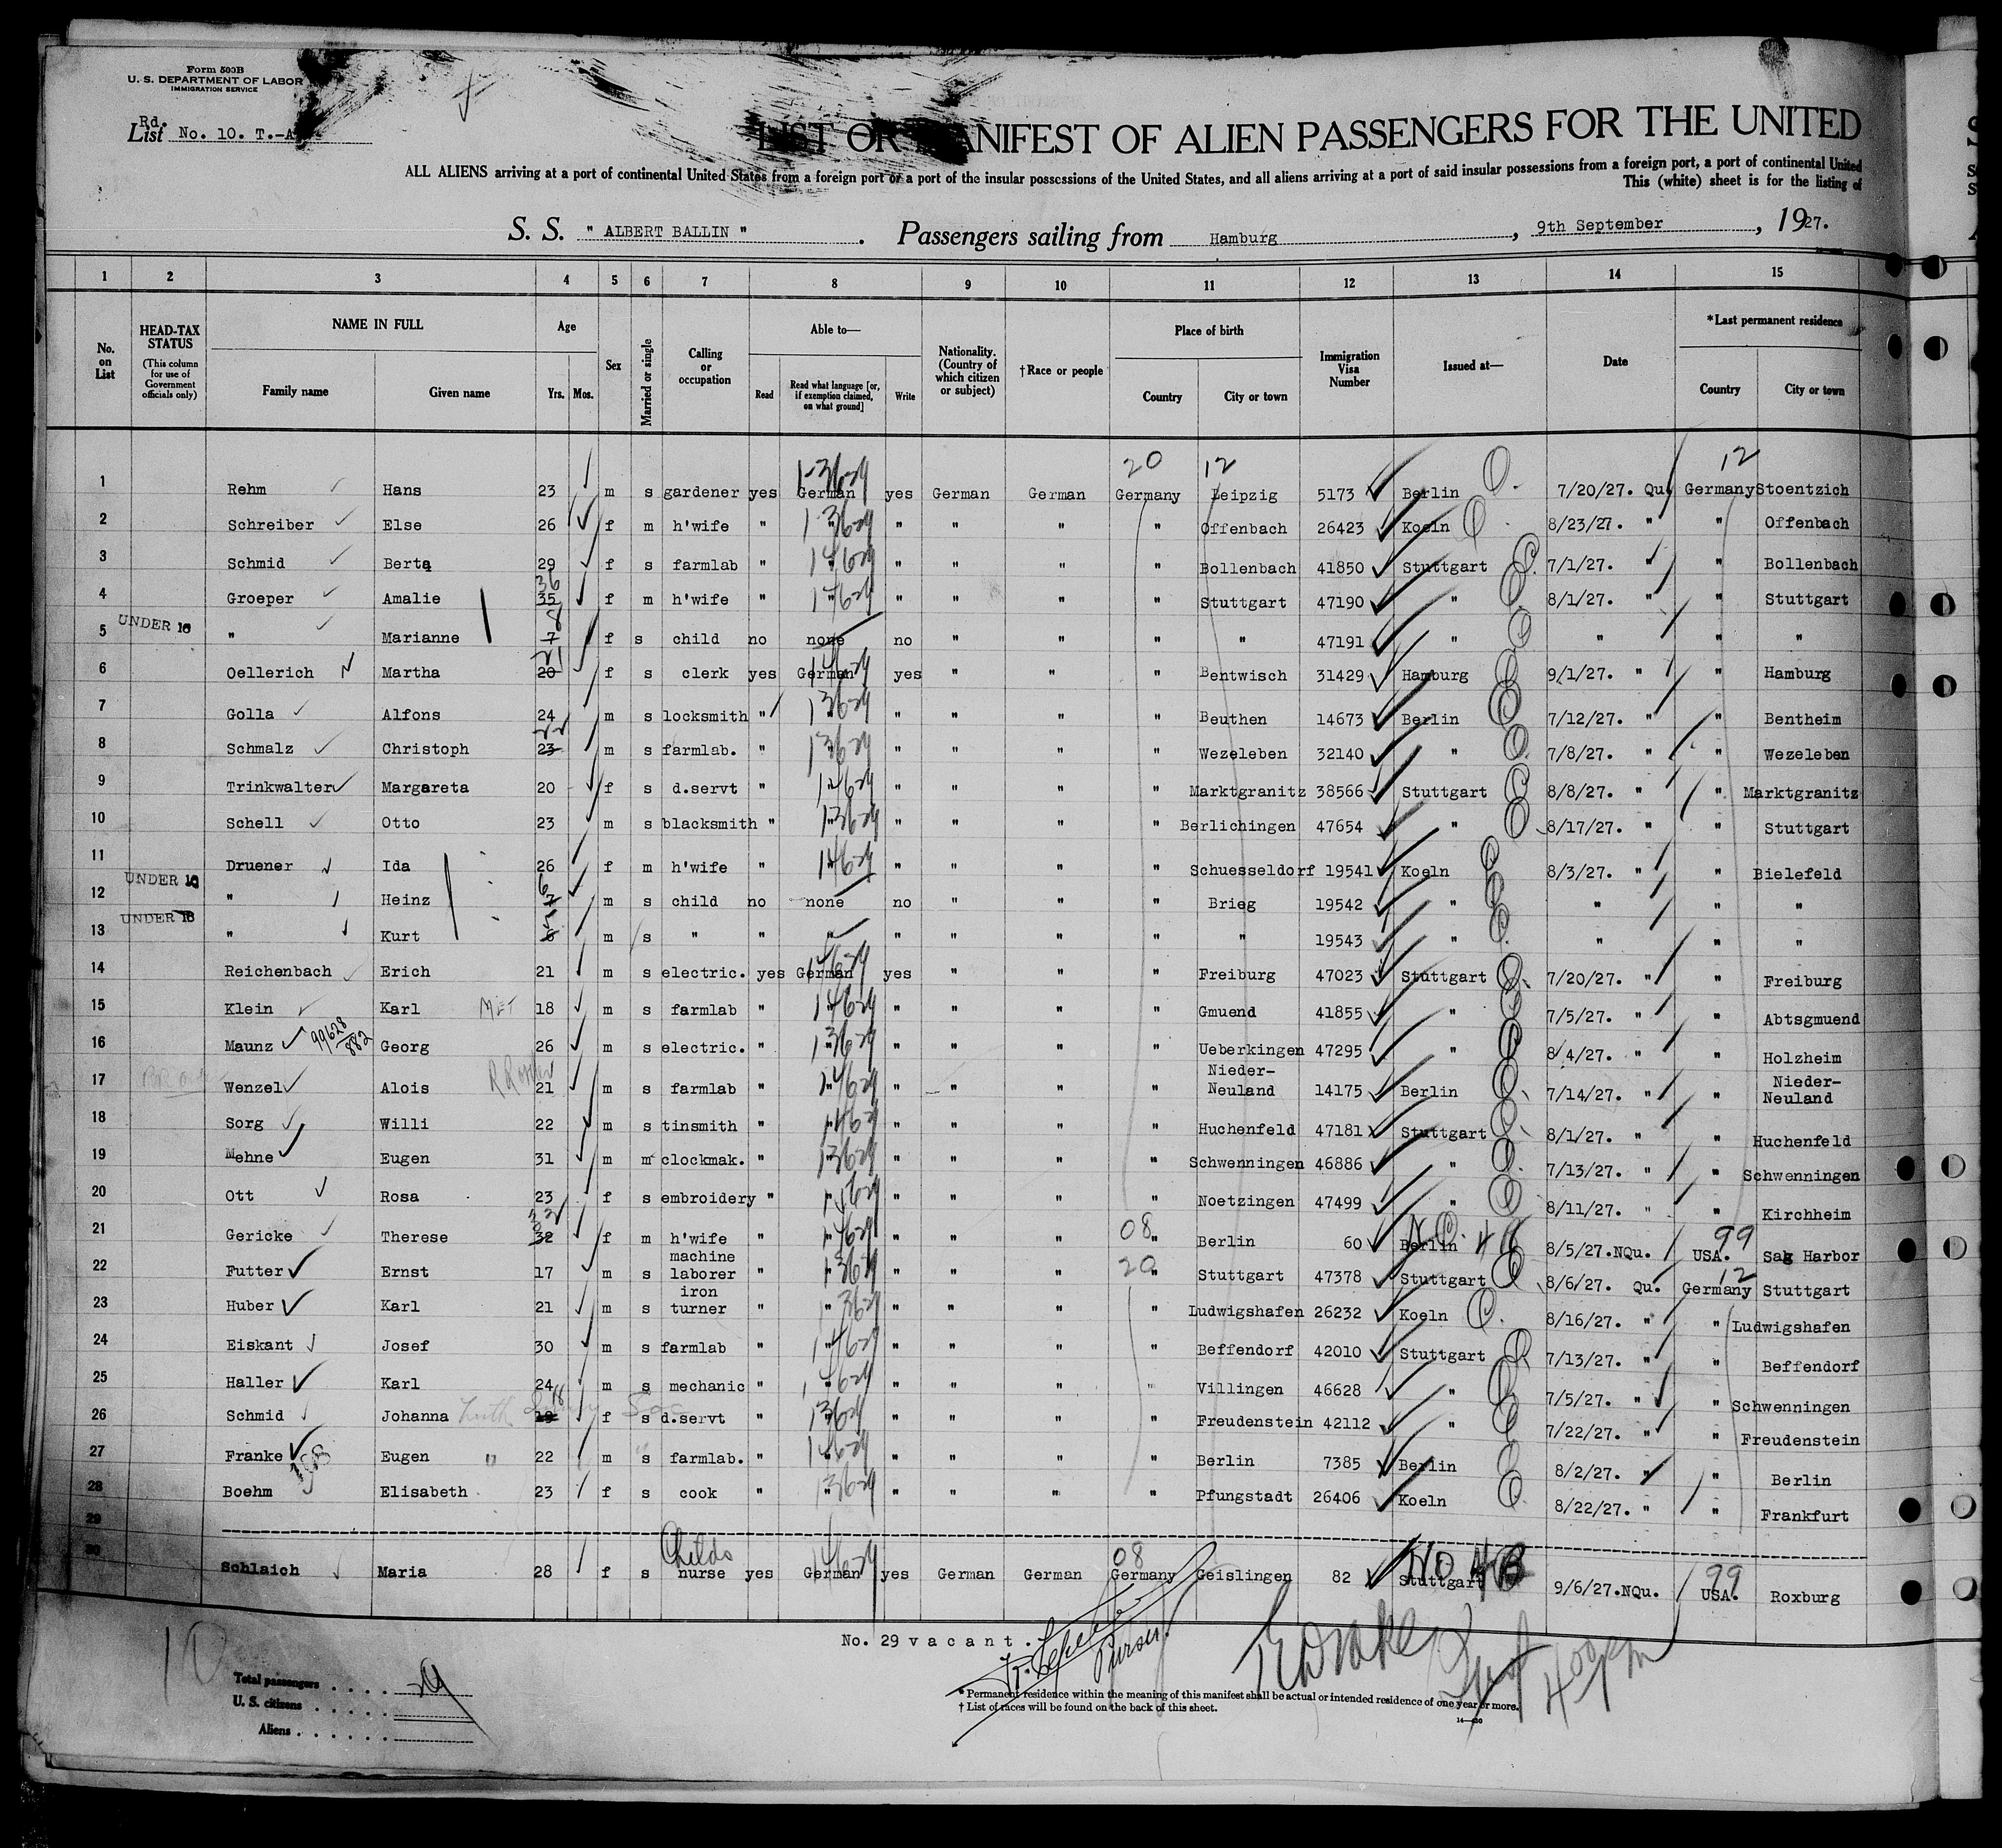 Form 500B
U. S. DEPARTMENT OF LABOR
IMMIGRATION SERVICE
Rd.
List No. 10. T.-A
LIST OR MANIFEST OF ALIEN PASSENGERS FOR THE UNITED
ALL ALIENS arriving at a port of continental United States from a foreign port or a port of the insular possessions of the United States, and all aliens arriving at a port of said insular possessions from a foreign port, a port of continental United
This (white) sheet is for the listing of
S. S. " ALBERT BALLIN " . Passengers sailing from Hamburg , 9th September , 1927.
1 2 3 4 5 6 7 8 9 10 11 12 13 14 15
No. on List HEAD-TAX STATUS (This column for use of Government officials only) NAME IN FULL Family name Given name Age Yrs. Mos. Sex Married or single Calling or occupation Able to— Read Read what language [or, if exemption claimed, on what ground] Write Nationality. (Country of which citizen or subject) †Race or people Place of birth Country City or town Immigration Visa Number Issued at— Date *Last permanent residence Country City or town
20 12 12
1 Rehm Hans 23 m s gardener yes German yes German German Germany Leipzig 5173 Berlin 7/20/27. Qu. Germany Stoentzich
2 Schreiber Else 26 f m h'wife " " " " " " Offenbach 26423 Koeln 8/23/27. " " Offenbach
3 Schmid Berta 29 f s farmlab " " " " " " Bollenbach 41850 Stuttgart 7/1/27. " " Bollenbach
36
4 Groeper Amalie 35 f m h'wife " " " " " " Stuttgart 47190 " 8/1/27. " " Stuttgart
UNDER 16 8
5 " Marianne 7 f s child no none no " " " " 47191 " " " "
21
6 Oellerich Martha 20 f s clerk yes German yes " " " Bentwisch 31429 Hamburg 9/1/27. " " Hamburg
7 Golla Alfons 24 m s locksmith " " " " " " Beuthen 14673 Berlin 7/12/27. " " Bentheim
22
8 Schmalz Christoph 23 m s farmlab. " " " " " " Wezeleben 32140 " 7/8/27. " " Wezeleben
9 Trinkwalter Margareta 20 f s d.servt " " " " " " Marktgranitz 38566 Stuttgart 8/8/27. " " Marktgranitz
10 Schell Otto 23 m s blacksmith " " " " " " Berlichingen 47654 " 8/17/27. " " Stuttgart
11 Druener Ida 26 f m h'wife " " " " " " Schuesseldorf 19541 Koeln 8/3/27. " " Bielefeld
UNDER 16 6
12 " Heinz 7 m s child no none no " " " Brieg 19542 " " " "
UNDER 16 5
13 " Kurt 6 m s " " " " " " " " 19543 " " " "
14 Reichenbach Erich 21 m s electric. yes German yes " " " Freiburg 47023 Stuttgart 7/20/27. " " Freiburg
15 Klein Karl 18 m s farmlab " " " " " " Gmuend 41855 " 7/5/27. " " Abtsgmuend
16 Maunz 99628/882 Georg 26 m s electric. " " " " " " Ueberkingen 47295 " 8/4/27. " " Holzheim
17 Wenzel Alois 21 m s farmlab " " " " " " Nieder-Neuland 14175 Berlin 7/14/27. " " Nieder-Neuland
18 Sorg Willi 22 m s tinsmith " " " " " " Huchenfeld 47181 Stuttgart 8/1/27. " " Huchenfeld
19 Mehne Eugen 31 m m clockmak. " " " " " " Schwenningen 46886 " 7/13/27. " " Schwenningen
20 Ott Rosa 23 f s embroidery " " " " " " Noetzingen 47499 " 8/11/27. " " Kirchheim
08 99
21 Gericke Therese 32 f m h'wife " " " " " " Berlin 60 Berlin 8/5/27.NQu. USA. Sag Harbor
20 12
22 Futter Ernst 17 m s machine laborer " " " " " " Stuttgart 47378 Stuttgart 8/6/27. Qu. Germany Stuttgart
23 Huber Karl 21 m s iron turner " " " " " " Ludwigshafen 26232 Koeln 8/16/27. " " Ludwigshafen
24 Eiskant Josef 30 m s farmlab " " " " " " Beffendorf 42010 Stuttgart 7/13/27. " " Beffendorf
25 Haller Karl 24 m s mechanic " " " " " " Villingen 46628 " 7/5/27. " " Schwenningen
18
26 Schmid Johanna 19 f s d.servt " " " " " " Freudenstein 42112 " 7/22/27. " " Freudenstein
27 Franke Eugen 22 m s farmlab. " " " " " " Berlin 7385 Berlin 8/2/27. " " Berlin
28 Boehm Elisabeth 23 f s cook " " " " " " Pfungstadt 26406 Koeln 8/22/27. " " Frankfurt
29
Childs 08 99
30 Schlaich Maria 28 f s nurse yes German yes German German Germany Geislingen 82 Stuttgart 9/6/27.NQu. USA. Roxburg
No. 29 vacant.
Purser
10
Total passengers 29
U. S. citizens
Aliens
* Permanent residence within the meaning of this manifest shall be actual or intended residence of one year or more.
† List of races will be found on the back of this sheet.